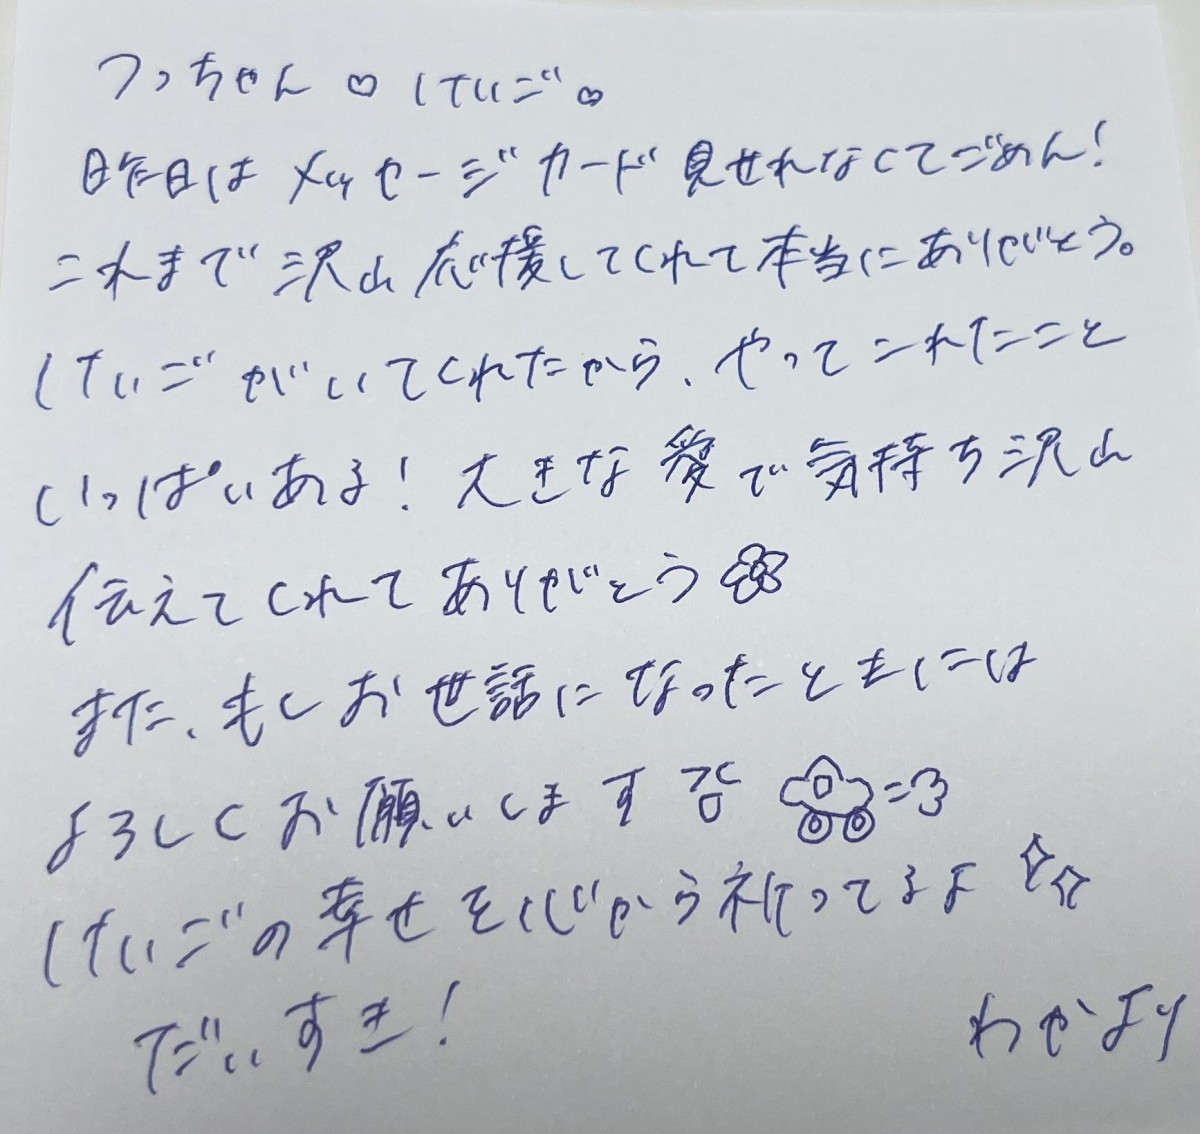 つっちゃん♡けいご♡
昨日はメッセージカード見せれなくてごめん!
これまで沢山応援してくれて本当にありがとう。
けいごがいてくれたから、やってこれたこと
いっぱいある!大きな愛で気持ち沢山
伝えてくれてありがとう
また、もしお世話になったときには
よろしくお願いします =3
けいごの幸せを心から祈ってるよ
だいすき!
わかより